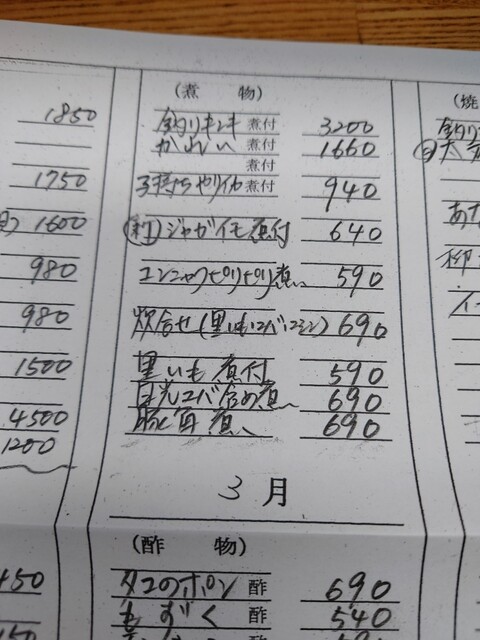 1850
1750
1600
980
980
1500
4500
1200
450
(煮 物)
釣りキンキ 煮付 3200
かれい 煮付 1660
煮付
子持ちやりイカ 煮付 940
(新)ジャガイモ煮付 640
コンニャクピリピリ煮 590
炊合せ(里いもユバニシン) 690
里いも 煮付 590
日光ユバ含め煮 690
豚角煮 690
3 月
(酢 物)
タコのポン 酢 690
もずく 酢 540
酢 80
(焼
釣り
あな
柳
イ